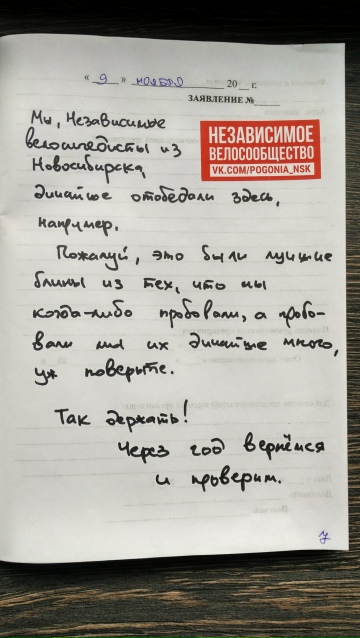 « 9 » ноября 20__ г.
ЗАЯВЛЕНИЕ №_____
Мы, Независимые
велосипедисты из
Новосибирска,
НЕЗАВИСИМОЕ
ВЕЛОСООБЩЕСТВО
VK.COM/POGONIA_NSK
отобедали здесь,
например.
Пожалуй, это были лучшие
блины из тех, что мы
когда-либо пробовали, а пробо-
вали мы их много,
уж поверьте.
Так держать!
Через год вернёмся
и проверим.
7